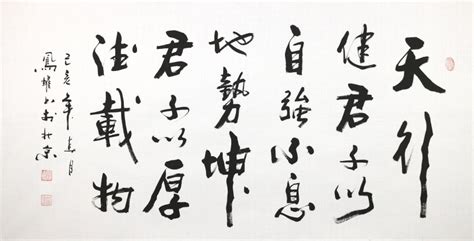 天行
健君子以
自強不息
地勢坤
君子以厚
德載物
己亥年月
鳳於京